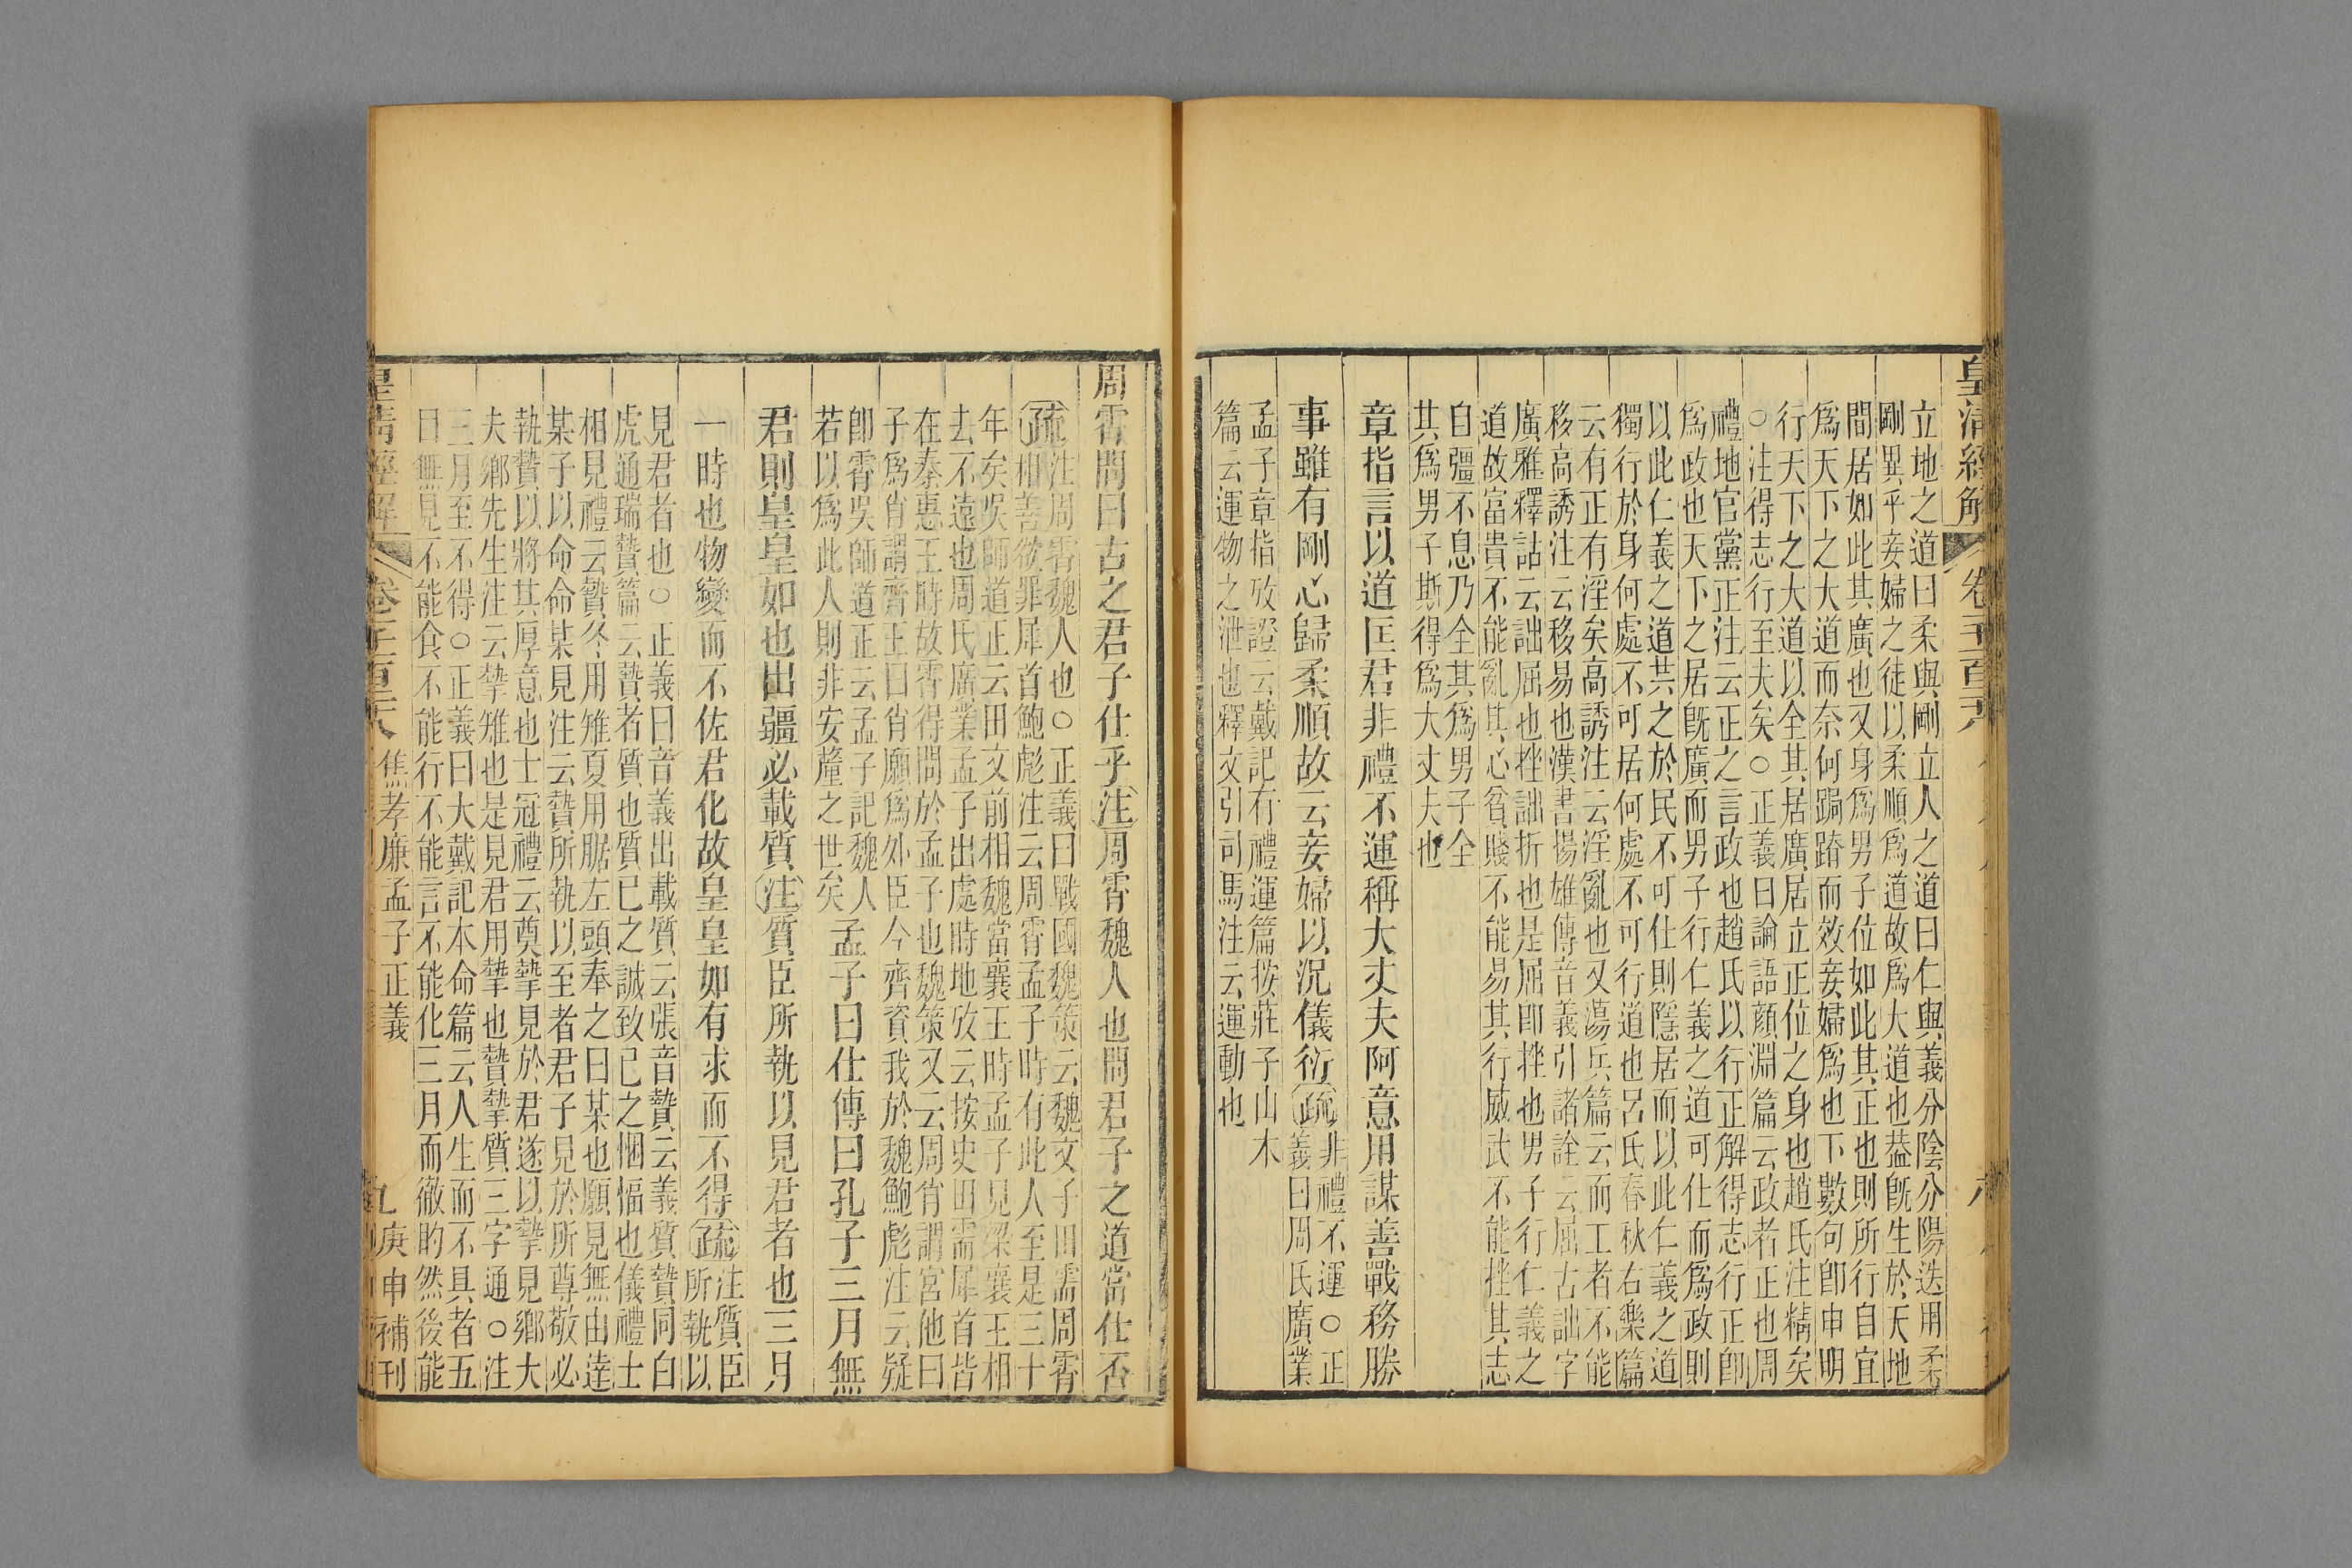 皇清經解
卷
立地之道曰柔與剛立人之道曰仁與義分陰分陽迭用柔
剛異乎妾婦之徒以柔順爲道故爲大道也蓋旣生於天地
間居如此其廣也又身爲男子位如此其正也則所行自宜
爲天下之大道而奈何跼蹐而效妾婦爲也下數句卽申明
行天下之大道以全其居廣居立正位之身也趙氏注精矣
○注得志行至夫矣○正義曰論語顏淵篇云政者正也周
禮地官黨正注云正之言政也趙氏以行正解得志行正卽
爲政也天下之居旣廣而男子行仁義之道可仕而爲政則
以此仁義之道共之於民不可仕則隱居而以此仁義之道
獨行於身何處不可居何處不可行道也呂氏春秋右樂篇
云有正有淫矣高誘注云淫亂也又蕩兵篇云而工者不能
移高誘注云移易也漢書揚雄傳音義引諸詮云屈古詘字
廣雅釋詁云詘屈也挫詘折也是屈卽挫也男子行仁義之
道故富貴不能亂其心貧賤不能易其行威武不能挫其志
自彊不息乃全其爲男子全
其爲男子斯得爲大丈夫也
章指言以道匡君非禮不運稱大丈夫阿意用謀善戰務勝
事雖有剛心歸柔順故云妾婦以況儀衍疏非禮不運○正
義曰周氏廣業
孟子章指攷證云戴記有禮運篇按莊子山木
篇云運物之泄也釋文引司馬注云運動也
周霄問曰古之君子仕乎注周霄魏人也問君子之道當仕否
疏注周霄魏人也○正義曰戰國魏策云魏文子田需周霄
相善欲罪犀首鮑彪注云周霄孟子時有此人至是三十
年矣吳師道正云田文前相魏當襄王時孟子見梁襄王相
去不遠也周氏廣業孟子出處時地攷云按史田需犀首皆
在秦惠王時故霄得問於孟子也魏策又云周肖謂宮他曰
子爲肖謂齊王曰肖願爲外臣今齊資我於魏鮑彪注云疑
卽霄吳師道正云孟子記魏人
若以爲此人則非安釐之世矣孟子曰仕傳曰孔子三月無
君則皇皇如也出疆必載質注質臣所執以見君者也三月
一時也物變而不佐君化故皇皇如有求而不得疏注質臣
所執以
見君者也○正義曰音義出載質云張音贄云義質贄同白
虎通瑞贄篇云贄者質也質已之誠致已之悃愊也儀禮士
相見禮云贄冬用雉夏用腒左頭奉之曰某也願見無由達
某子以命命某見注云贄所執以至者君子見於所尊敬必
執贄以將其厚意也士冠禮云奠摯見於君遂以摯見鄉大
夫鄉先生注云摯雉也是見君用摯也贄摯質三字通○注
三月至不得○正義曰大戴記本命篇云人生而不具者五
目無見不能食不能行不能言不能化三月而徹盷然後能
焦孝廉孟子正義
九
庚申補刊